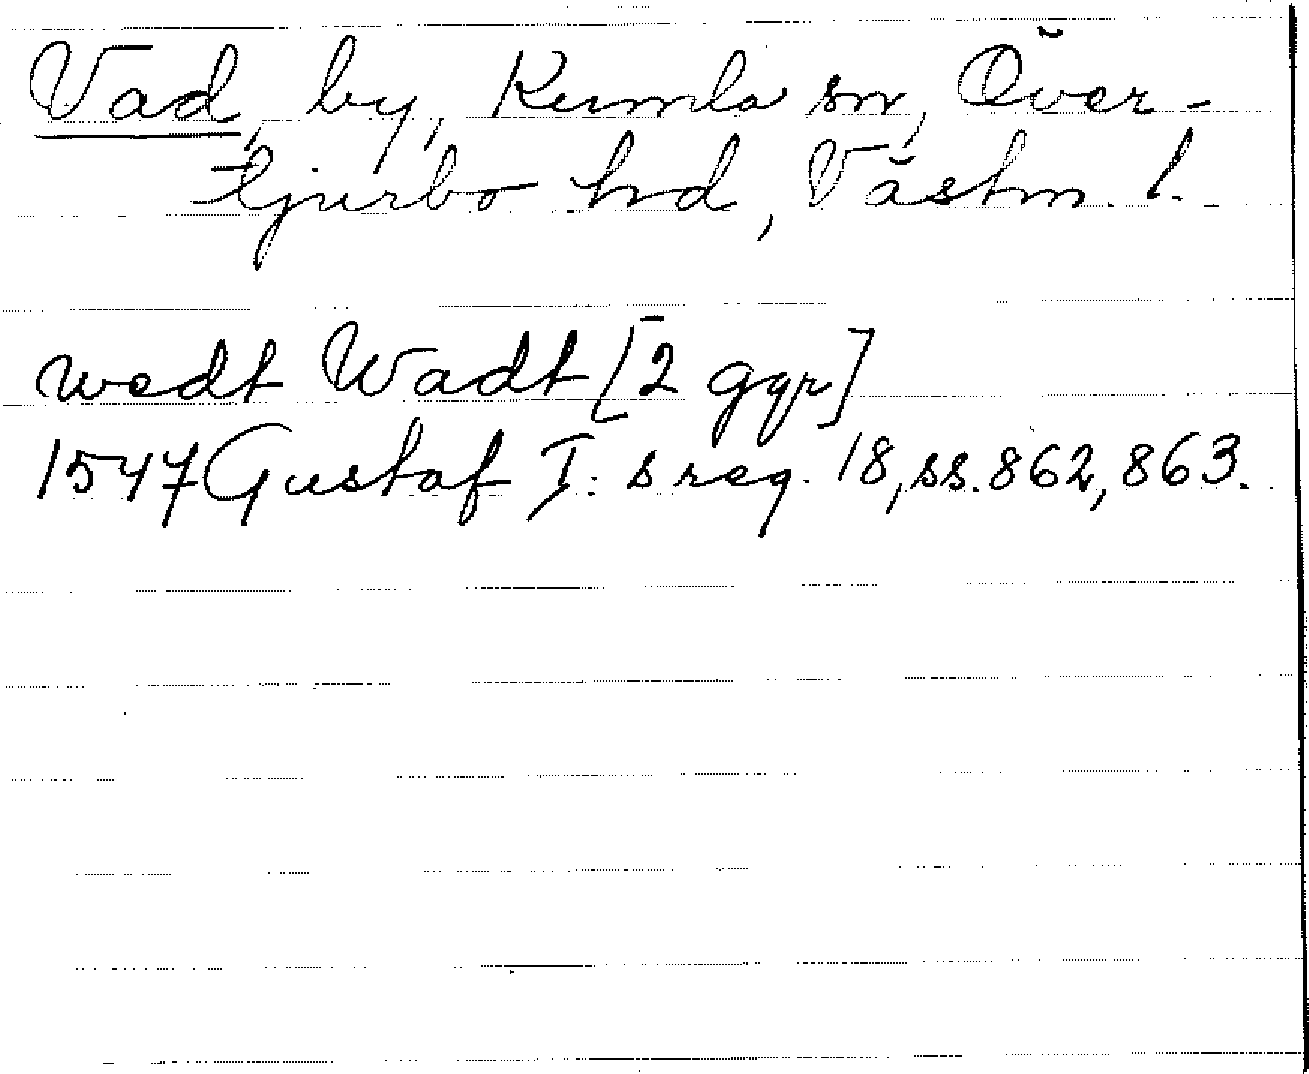 Vad, by, Kumla sn, Över-
tjurbo hd, Västm. l.
wedt Wadt [2 ggr]
1547 Gustaf I:s reg. 18, ss. 862, 863.